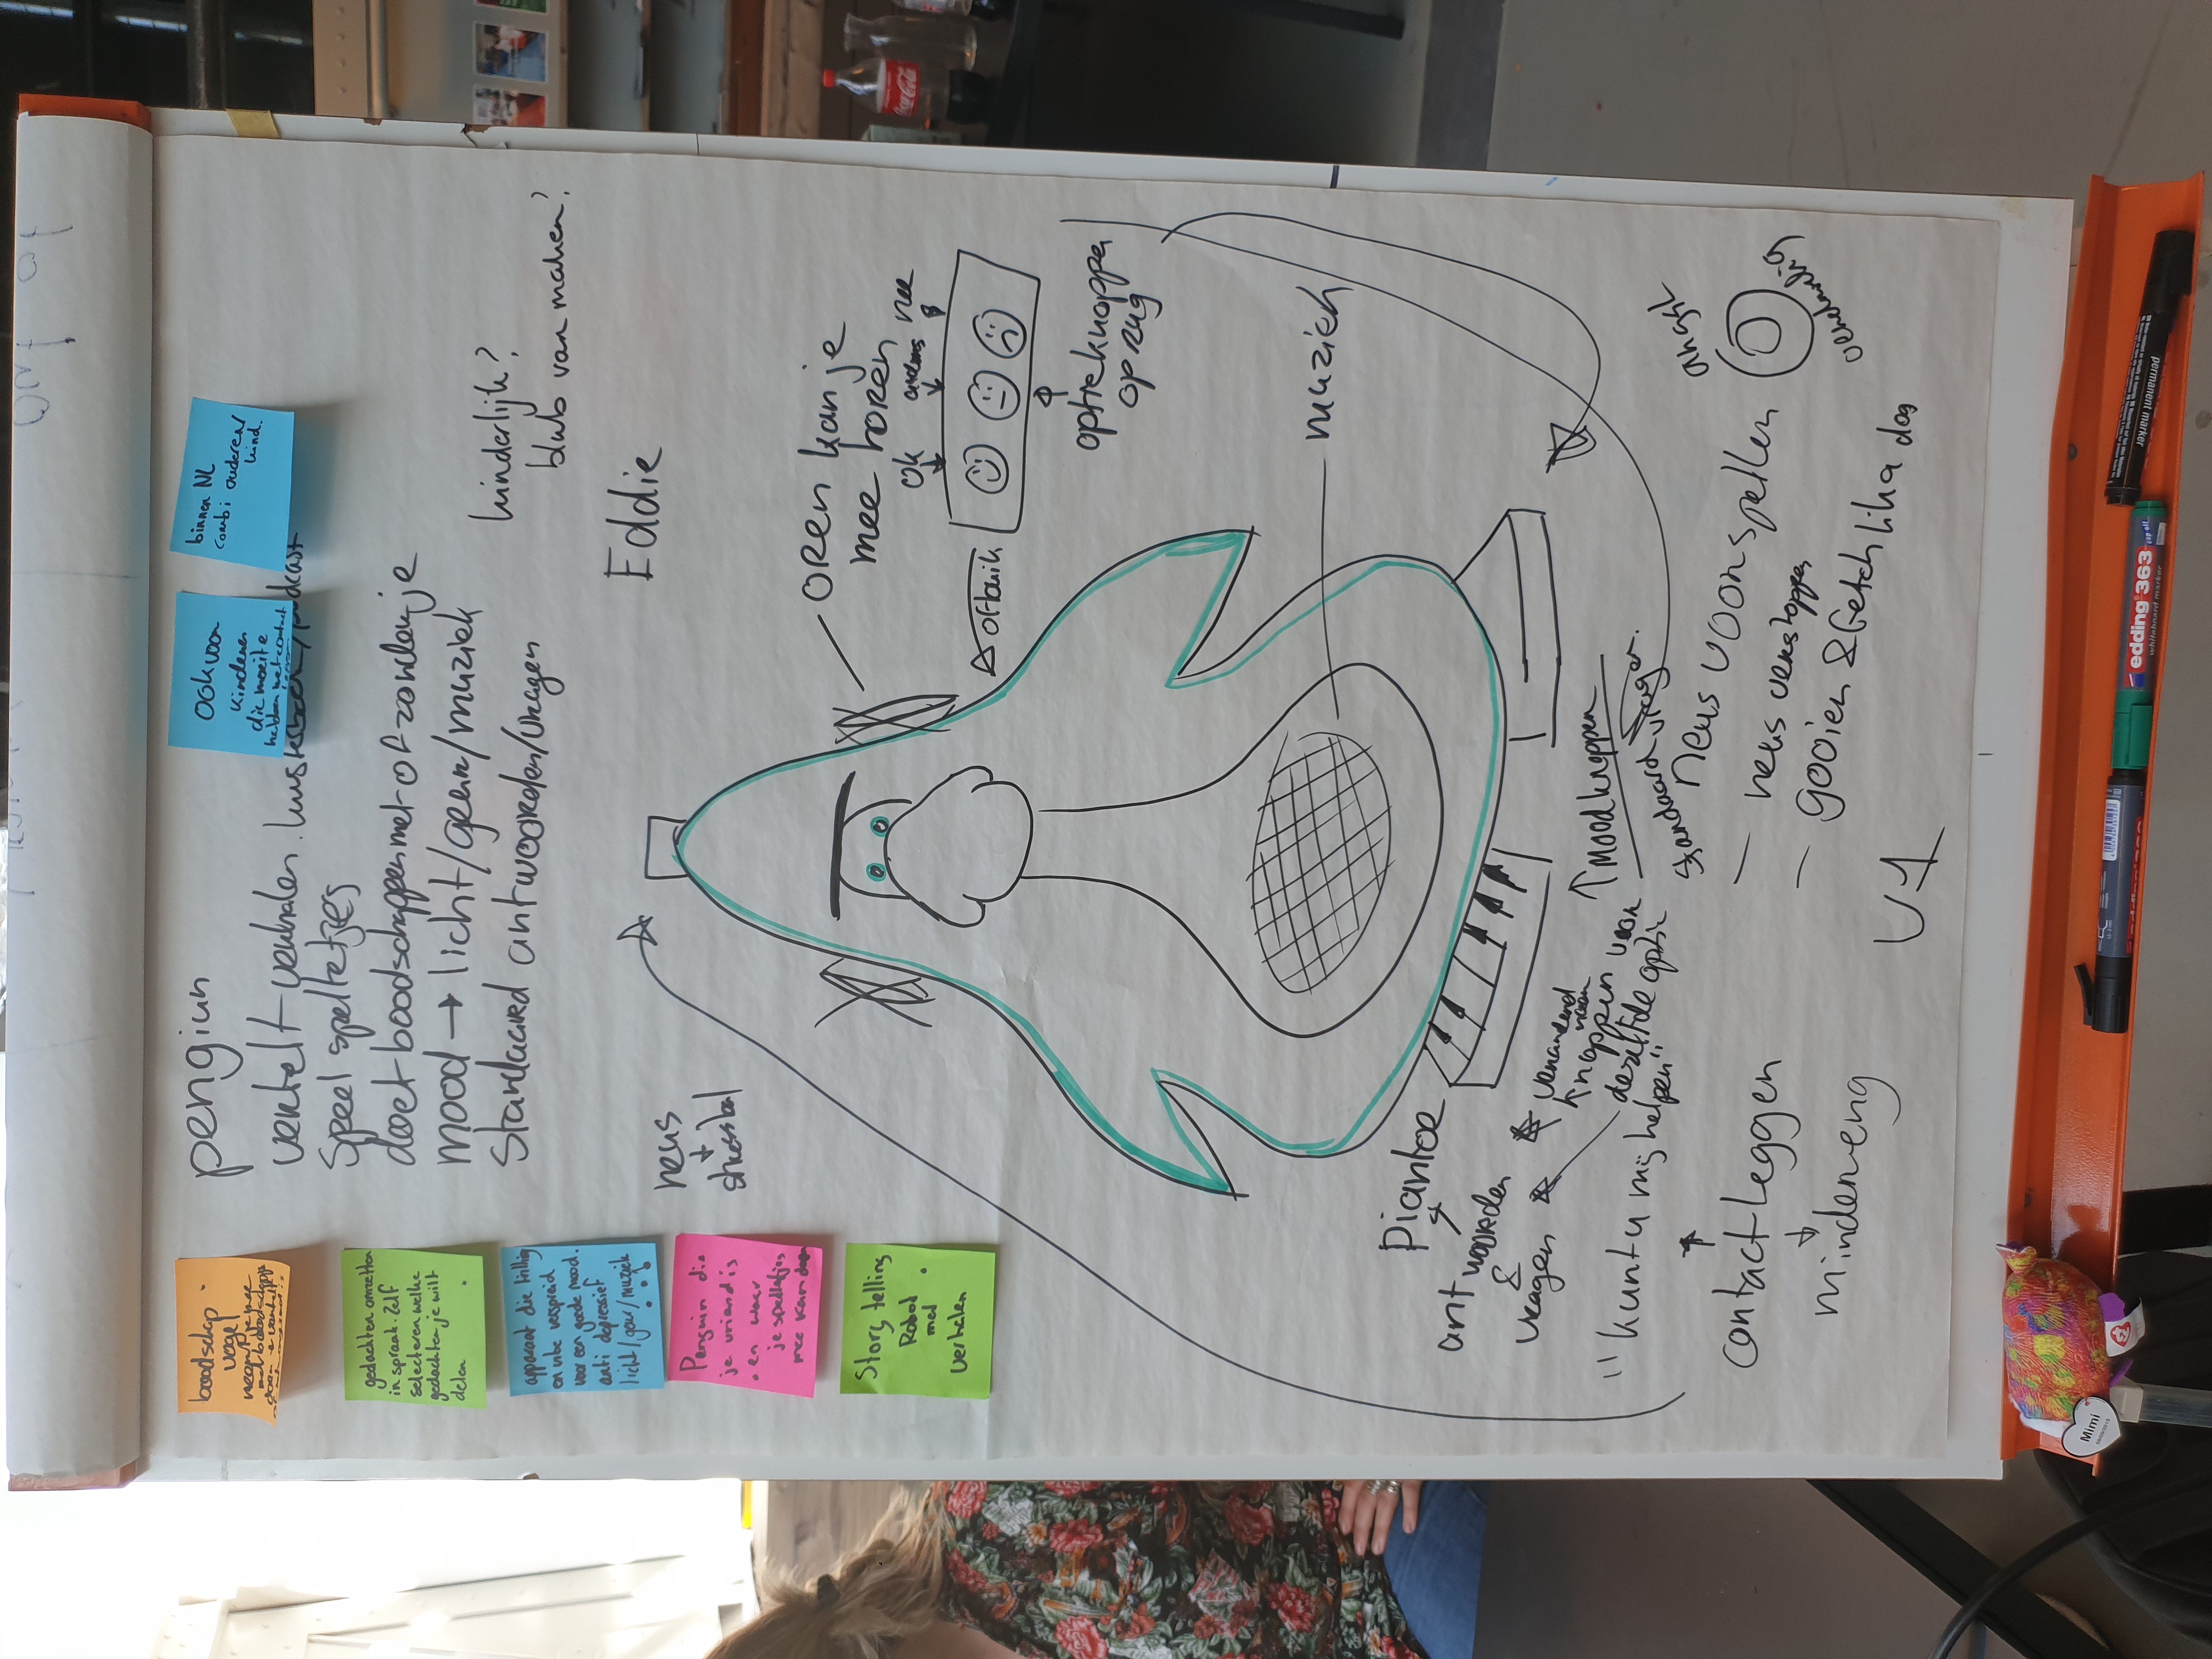 boodschap
vogel
gedachten omzetten
in spraak. Zelf
selecteren welke
gedachten je wilt
delen
apparaat die trilling
en vibe verspreid
voor een goede mood.
anti depressief
licht/geur/muziek
Penguin die
je vriend is
en waar
je spelletjes
mee kan doen
Story telling
Robot
met
verhalen
pengiun
vertelt verhalen. /podcast
Speel spelletjes
doet boodschappen met of zonder je
mood → licht/geur/muziek
Standaard antwoorden/vragen
Ook voor
kinderen
die moeite
hebben met contact
binnen NL
combi ouderen/
kind.
kinderlijk?
blub van maken?
Eddie
neus
stressbal
oren kan je
mee horen
ok anders nee
of buik
optieknoppen
op rug
muziek
piantoe
antwoorden
&
vragen
knoppen voor
dezelfde optie
"kunt u mij helpen"
contact leggen
minder eng
↑ Moodknoppen
standaard vragen.
neus voor spellen
– neus verstoppen
– gooien & fetch like a dog
angst
verdrietig
V1
Mimi
edding 363
whiteboard marker
permanent marker
Coca-Cola
ty